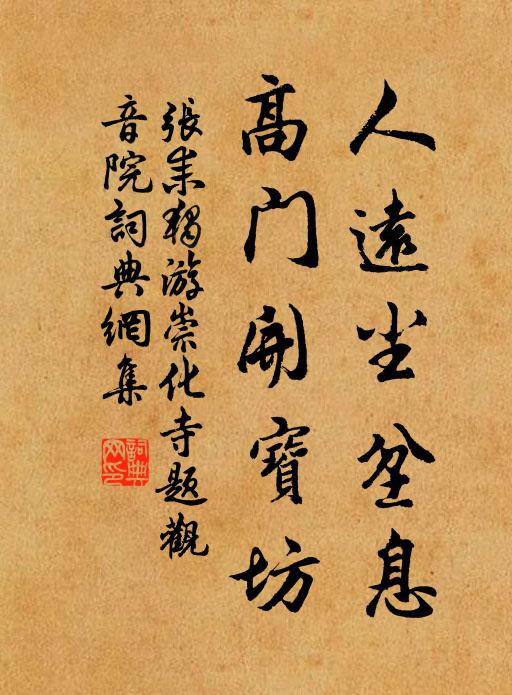 人遠尘坌息
高门開寶坊
張耒獨游崇化寺題觀
音院詞典網集
詞典网印